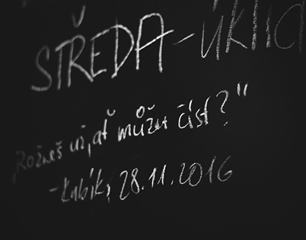 STŘEDA - ÚKLID
„Rožneš už, ať můžu číst?"
- Kubík, 28.11.2016